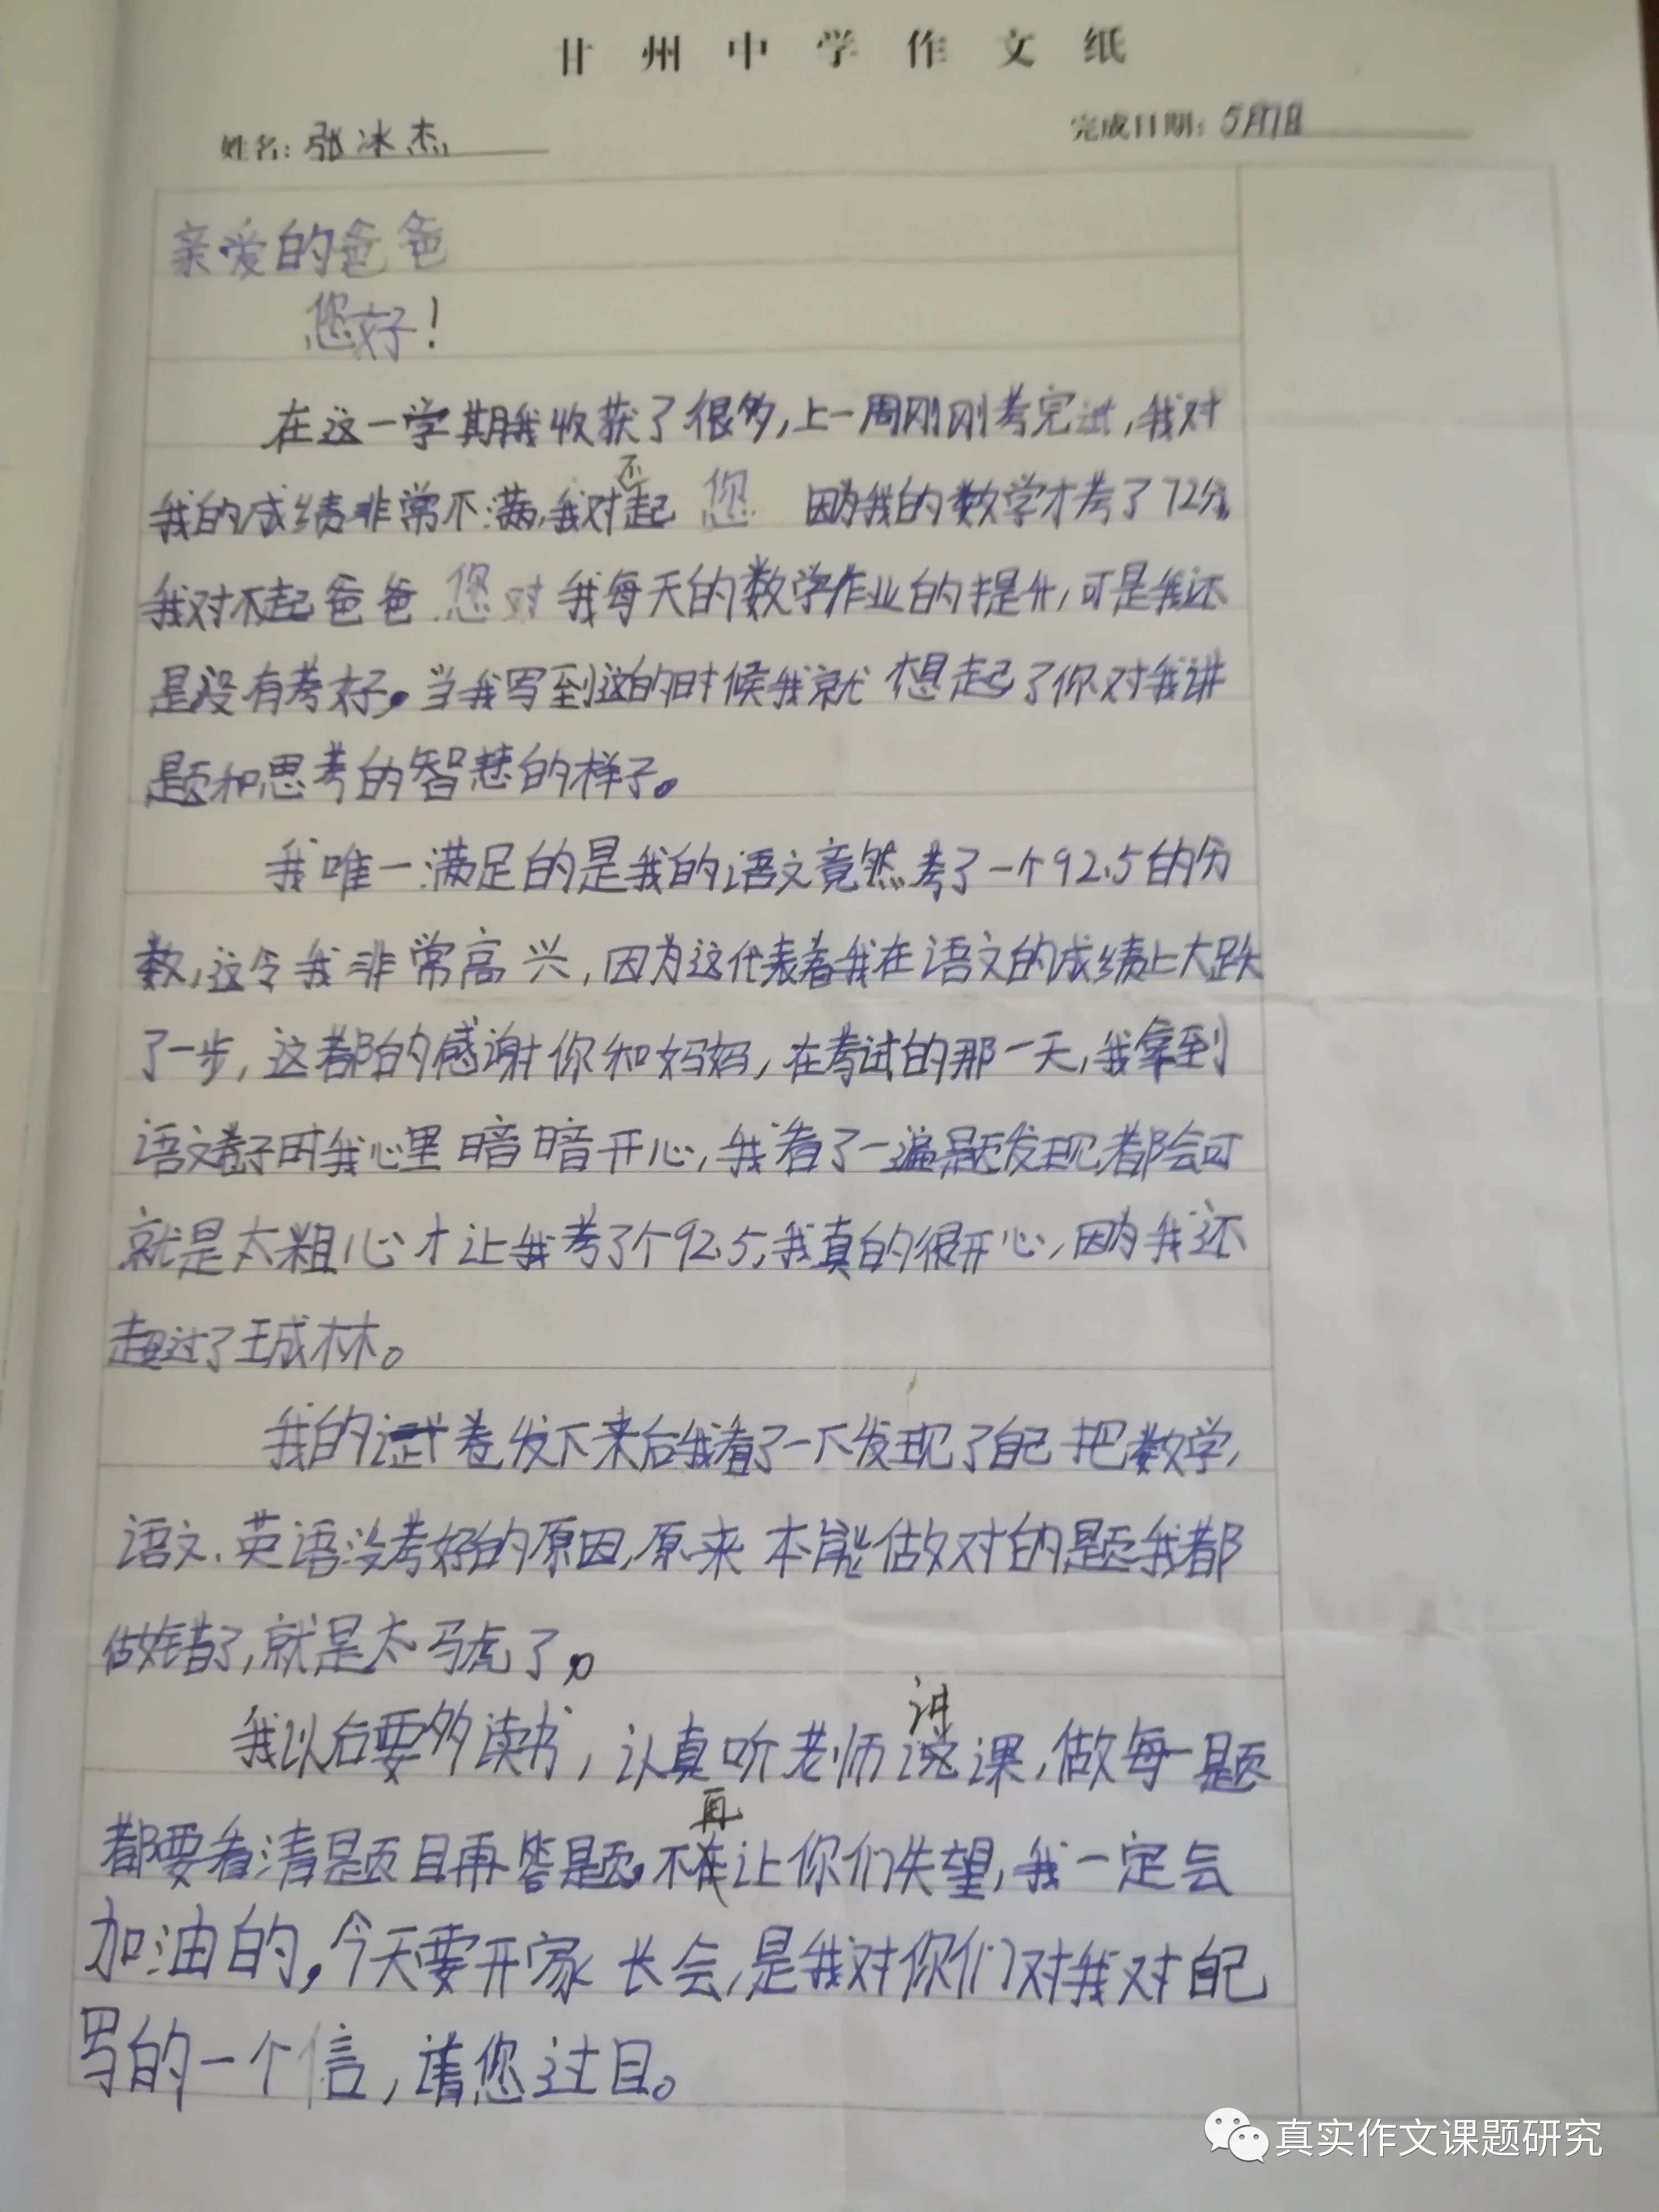 甘州中学作文纸
姓名：张冰杰
完成日期：5月7日
亲爱的爸爸
您好！
在这一学期我收获了很多，上一周刚刚考完试，我对
我的成绩非常不满，我对不起 您 因为我的数学才考了72分，
我对不起爸爸 您对我每天的数学作业的提升，可是我还
是没有考好。当我写到这的时候我就想起了你对我讲
题和思考的智慧的样子。
我唯一满足的是我的语文竟然考了一个92.5的分
数，这令我非常高兴，因为这代表着我在语文的成绩上大跃
了一步，这都的感谢你和妈妈，在考试的那一天，我拿到
语文卷子时我心里暗暗开心，我看了一遍题发现都会可
就是太粗心才让我考了个92.5，我真的很开心，因为我还
超过了王成林。
我的试卷发下来后我看了一下发现了自己把数学，
语文、英语没考好的原因，原来本能做对的题我都
做错了，就是太马虎了。
我以后要多读书，认真听老师讲课，做每一题
都要看清题目再答题，不再让你们失望，我一定会
加油的，今天要开家长会，是我对你们对我对自己
写的一个信，请您过目。
真实作文课题研究